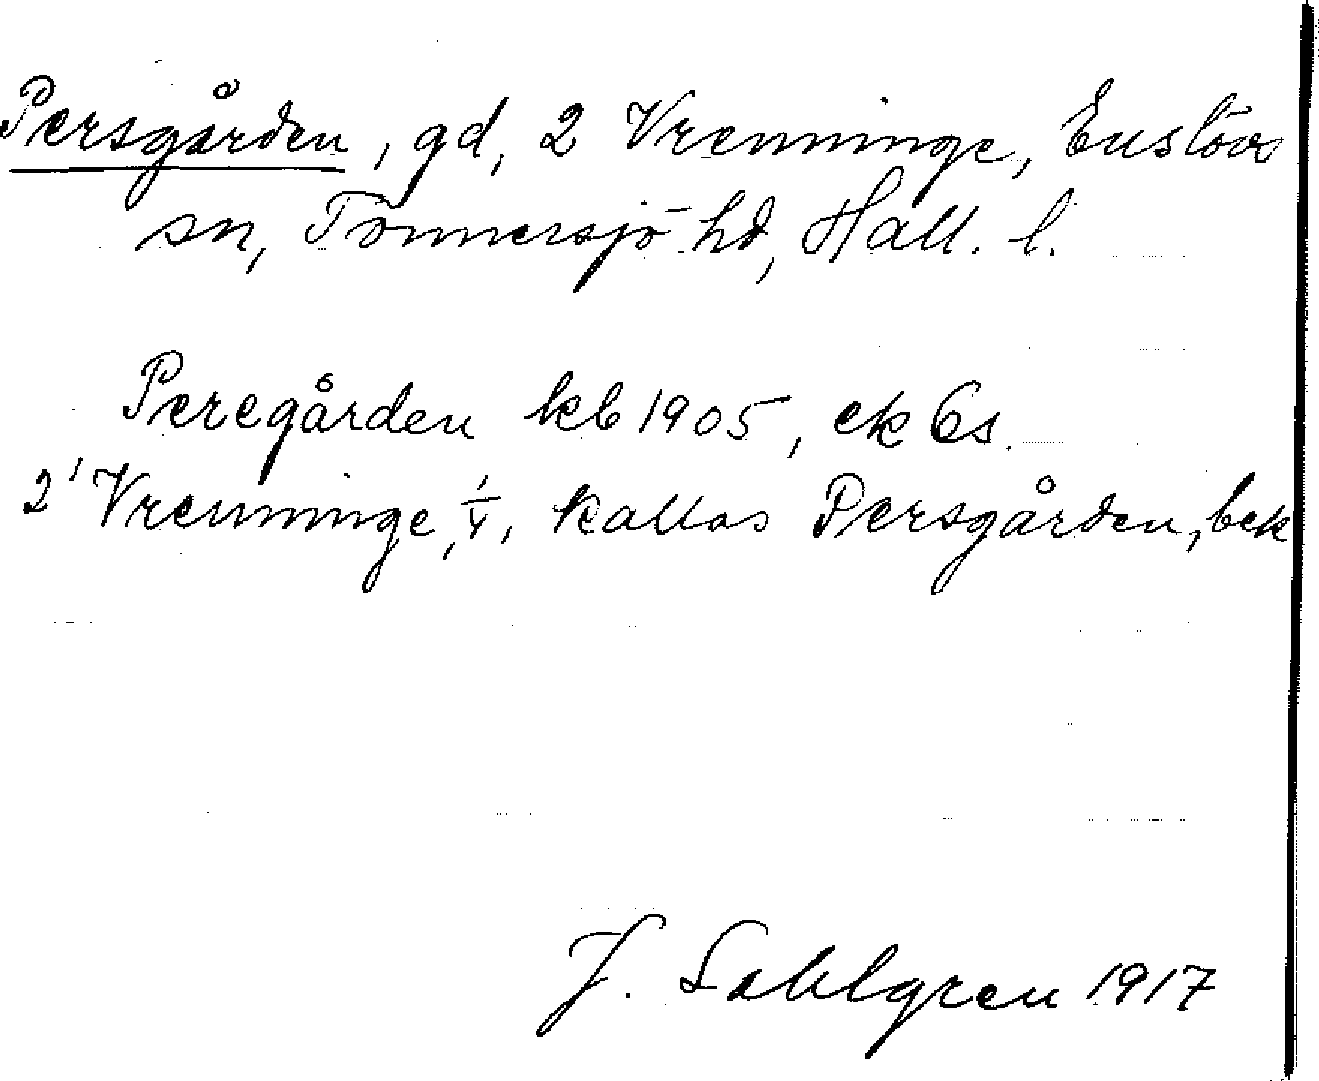 Persgården, gd, 2 Vrenninge, Enslövs
sn, Tönnersjö hd, Hall. l.
Peregården kb 1905, ek 6s.
2' Vrenninge, 1/V, kallas Persgården, bek
J. Sahlgren 1917